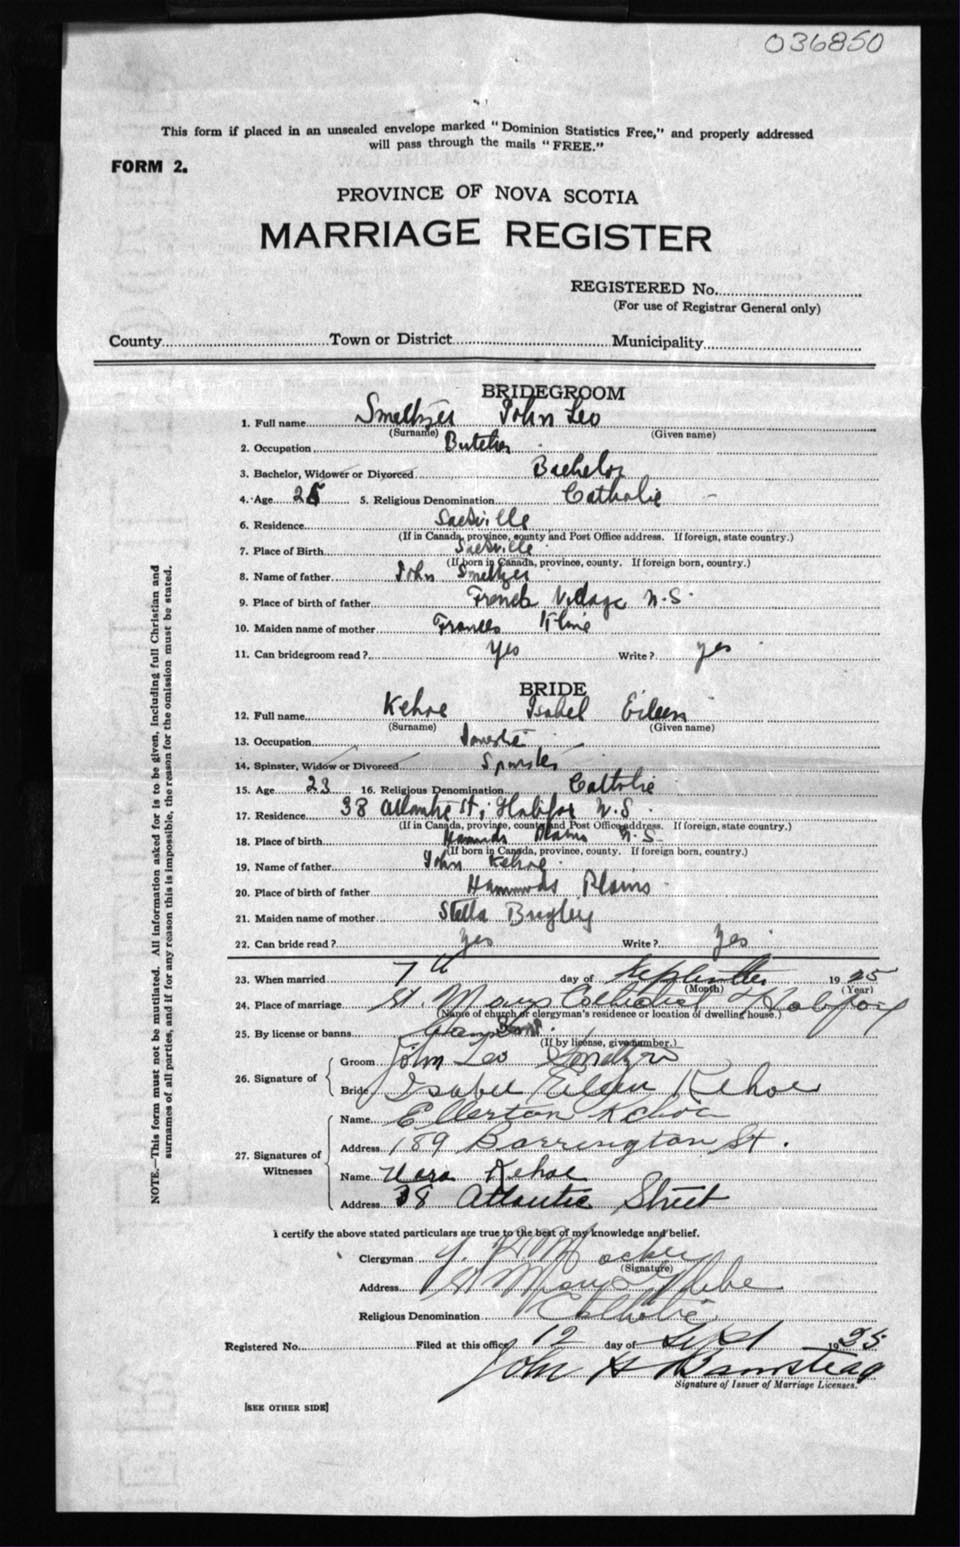 036850
This form if placed in an unsealed envelope marked "Dominion Statistics Free," and properly addressed
will pass through the mails "FREE."
FORM 2.
PROVINCE OF NOVA SCOTIA
MARRIAGE REGISTER
REGISTERED No.
(For use of Registrar General only)
County Town or District Municipality
BRIDEGROOM
1. Full name Smeltzer John Leo
(Surname) (Given name)
2. Occupation Butcher
3. Bachelor, Widower or Divorced Bachelor
4. Age 25 5. Religious Denomination Catholic
6. Residence Sackville
(If in Canada, province, county and Post Office address. If foreign, state country.)
7. Place of Birth Sackville
(If born in Canada, province, county. If foreign born, country.)
8. Name of father John Smeltzer
9. Place of birth of father French Village N.S.
10. Maiden name of mother Frances Kline
11. Can bridegroom read? Yes Write? yes
BRIDE
12. Full name Kehoe Isabel Eileen
(Surname) (Given name)
13. Occupation Domestic
14. Spinster, Widow or Divorced Spinster
15. Age 23 16. Religious Denomination Catholic
17. Residence 38 Atlantic St; Halifax N.S.
(If in Canada, province, county and Post Office address. If foreign, state country.)
18. Place of birth Hammonds Plains N.S.
(If born in Canada, province, county. If foreign born, country.)
19. Name of father John Kehoe
20. Place of birth of father Hammonds Plains
21. Maiden name of mother Stella
22. Can bride read? Yes Write? Yes
23. When married 7th day of September 1925
(Month) (Year)
24. Place of marriage St. Marys Cathedral Halifax
(Name of church or clergyman's residence or location of dwelling house.)
25. By license or banns
(If by license, give number.)
26. Signature of Groom John Leo Smeltzer
Bride Isabel Eileen Kehoe
27. Signatures of Witnesses Name Ellerton Kehoe
Address 189 Barrington St.
Name Vera Kehoe
Address 38 Atlantic Street
I certify the above stated particulars are true to the best of my knowledge and belief.
Clergyman
(Signature)
Address St Marys Glebe
Religious Denomination Catholic
Registered No. Filed at this office 12 day of Sept 1925
John H Barnstead
Signature of Issuer of Marriage Licenses.
[SEE OTHER SIDE]
NOTE.—This form must not be mutilated. All information asked for is to be given, including full Christian and
surnames of all parties, and if for any reason this is impossible, the reason for the omission must be stated.